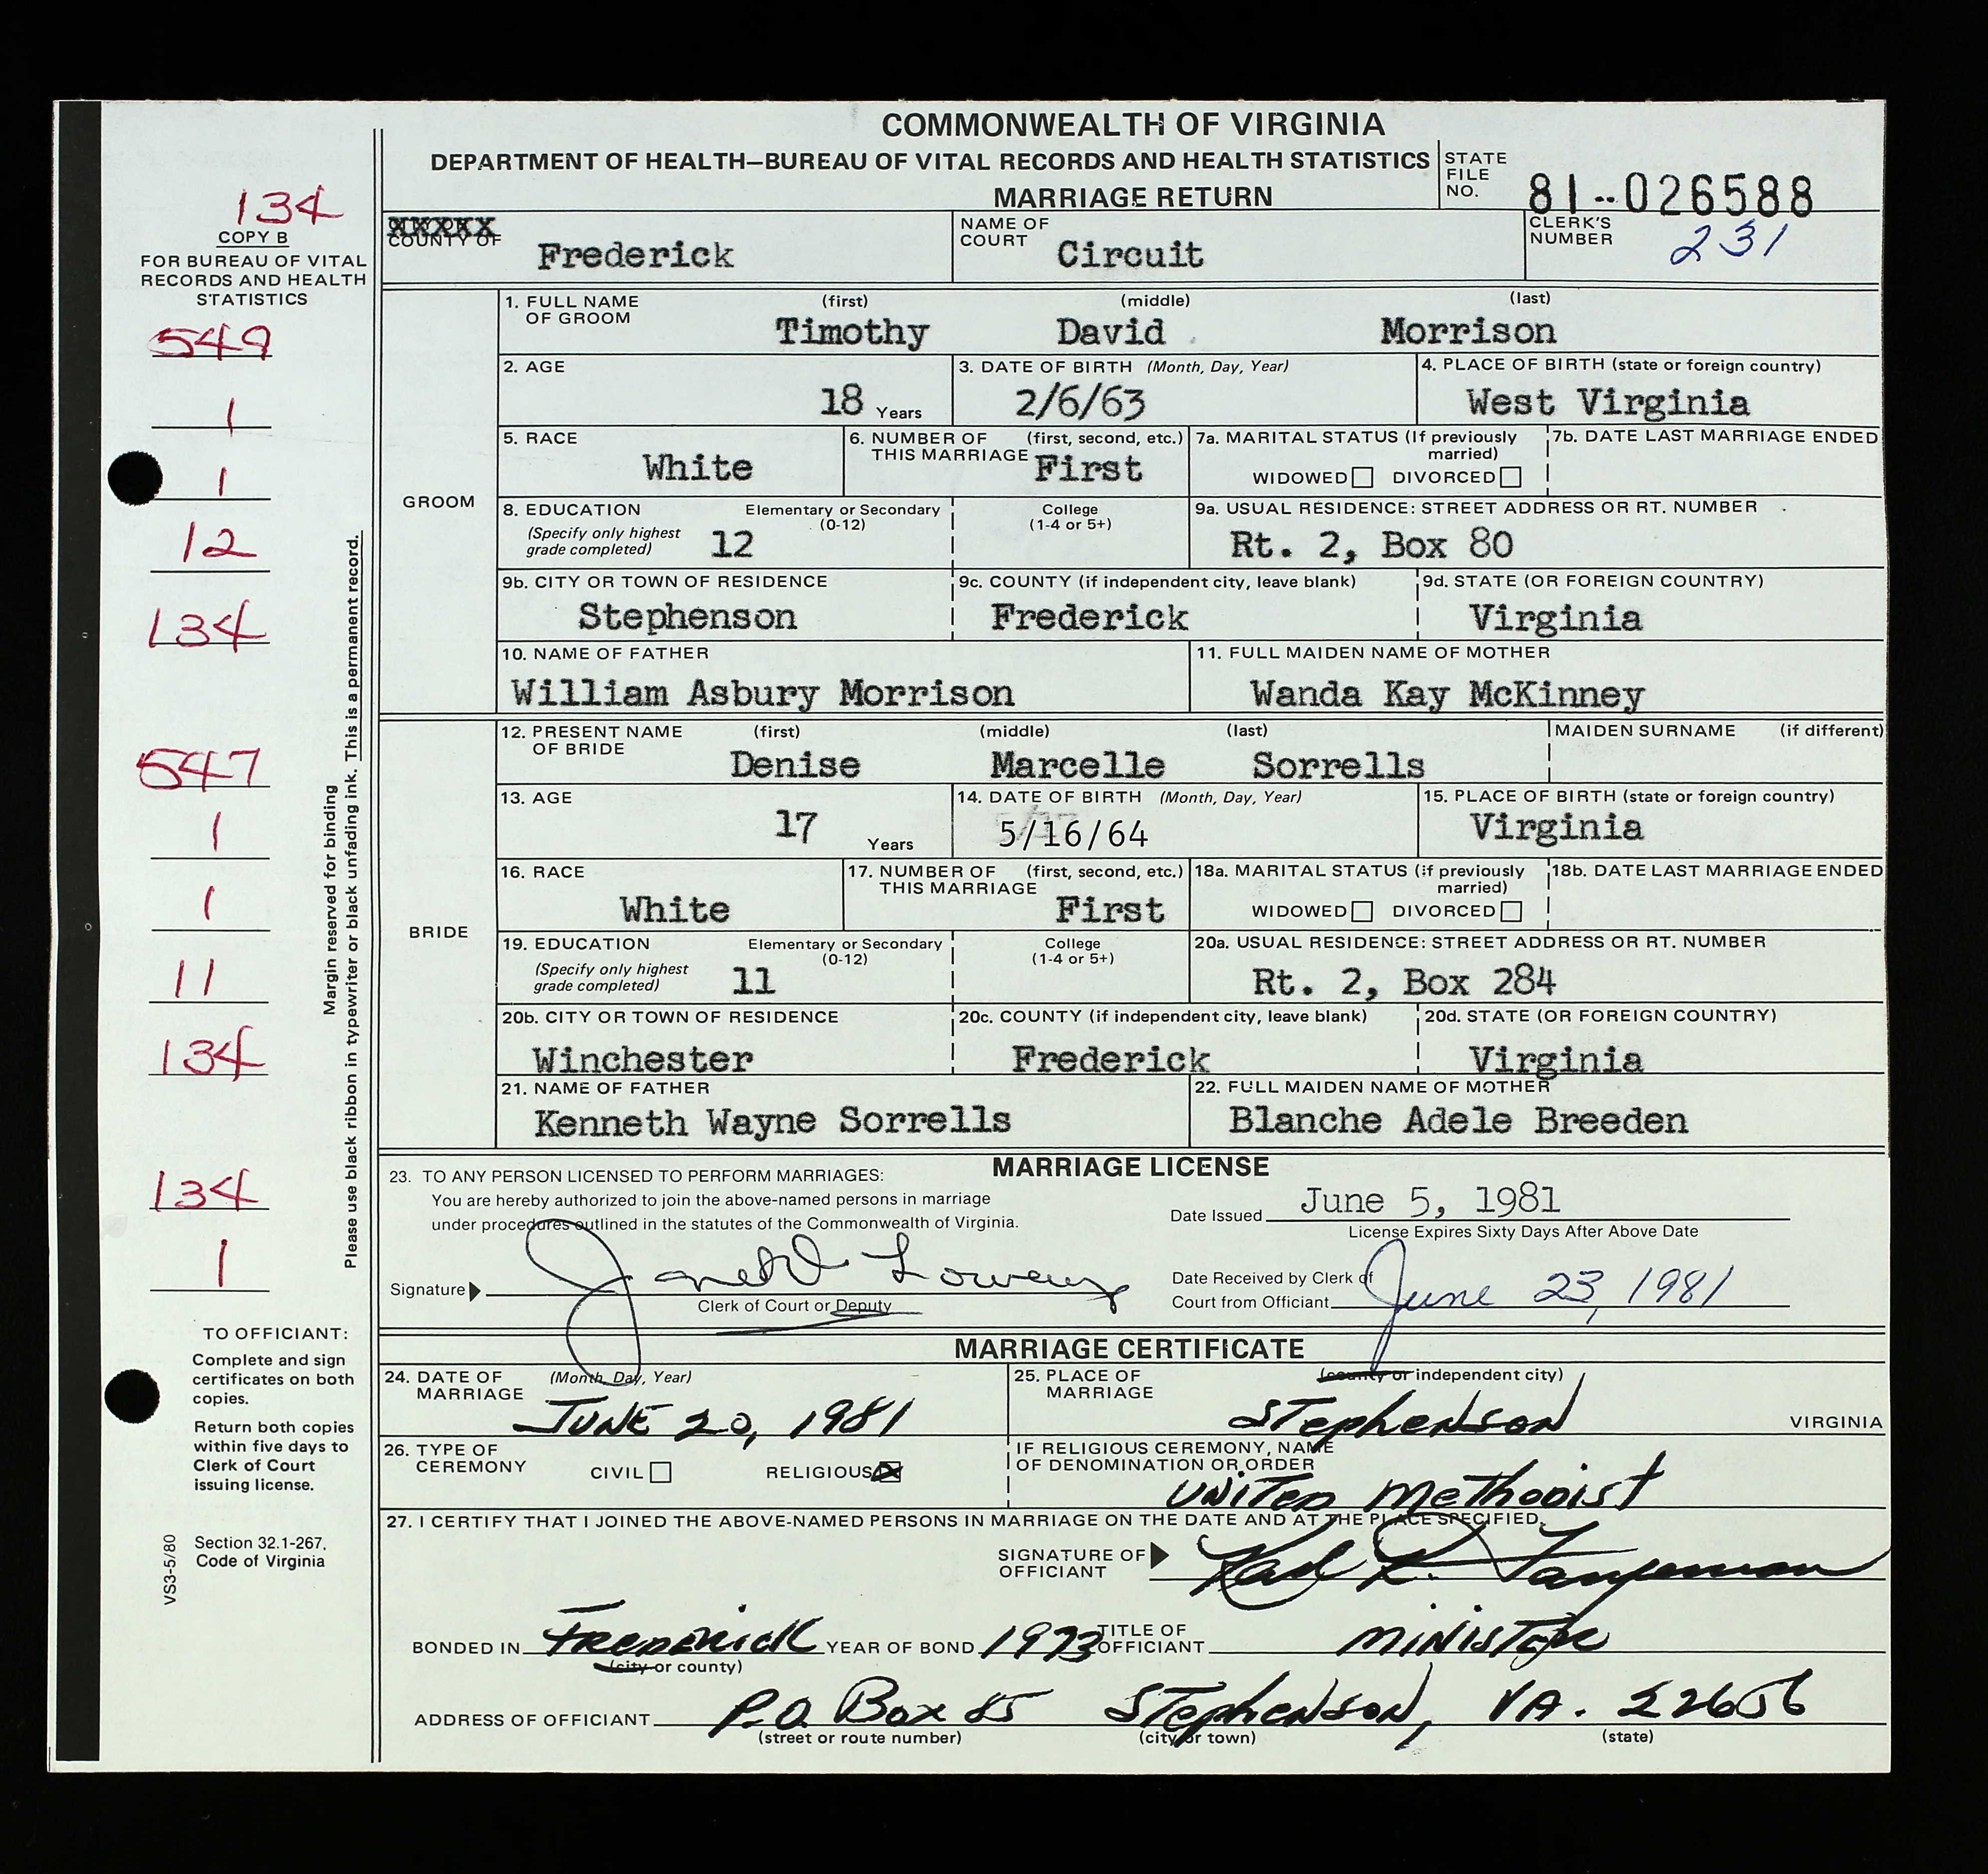 COMMONWEALTH OF VIRGINIA
DEPARTMENT OF HEALTH—BUREAU OF VITAL RECORDS AND HEALTH STATISTICS
MARRIAGE RETURN
STATE FILE NO. 81--026588
134
COPY B
FOR BUREAU OF VITAL
RECORDS AND HEALTH
STATISTICS
549
1
1
12
134
547
1
1
11
134
134
1
Margin reserved for binding
Please use black ribbon in typewriter or black unfading ink. This is a permanent record.
TO OFFICIANT:
Complete and sign
certificates on both
copies.
Return both copies
within five days to
Clerk of Court
issuing license.
Section 32.1-267,
Code of Virginia
VS3-5/80
XXXXX
COUNTY OF Frederick
NAME OF COURT Circuit
CLERK'S NUMBER 231
GROOM
1. FULL NAME OF GROOM (first) (middle) (last)
Timothy David Morrison
2. AGE 18 Years
3. DATE OF BIRTH (Month, Day, Year) 2/6/63
4. PLACE OF BIRTH (state or foreign country) West Virginia
5. RACE White
6. NUMBER OF THIS MARRIAGE (first, second, etc.) First
7a. MARITAL STATUS (If previously married) WIDOWED DIVORCED
7b. DATE LAST MARRIAGE ENDED
8. EDUCATION (Specify only highest grade completed) Elementary or Secondary (0-12) 12
College (1-4 or 5+)
9a. USUAL RESIDENCE: STREET ADDRESS OR RT. NUMBER Rt. 2, Box 80
9b. CITY OR TOWN OF RESIDENCE Stephenson
9c. COUNTY (if independent city, leave blank) Frederick
9d. STATE (OR FOREIGN COUNTRY) Virginia
10. NAME OF FATHER William Asbury Morrison
11. FULL MAIDEN NAME OF MOTHER Wanda Kay McKinney
BRIDE
12. PRESENT NAME OF BRIDE (first) (middle) (last)
Denise Marcelle Sorrells
MAIDEN SURNAME (if different)
13. AGE 17 Years
14. DATE OF BIRTH (Month, Day, Year) 5/16/64
15. PLACE OF BIRTH (state or foreign country) Virginia
16. RACE White
17. NUMBER OF THIS MARRIAGE (first, second, etc.) First
18a. MARITAL STATUS (if previously married) WIDOWED DIVORCED
18b. DATE LAST MARRIAGE ENDED
19. EDUCATION (Specify only highest grade completed) Elementary or Secondary (0-12) 11
College (1-4 or 5+)
20a. USUAL RESIDENCE: STREET ADDRESS OR RT. NUMBER Rt. 2, Box 284
20b. CITY OR TOWN OF RESIDENCE Winchester
20c. COUNTY (if independent city, leave blank) Frederick
20d. STATE (OR FOREIGN COUNTRY) Virginia
21. NAME OF FATHER Kenneth Wayne Sorrells
22. FULL MAIDEN NAME OF MOTHER Blanche Adele Breeden
MARRIAGE LICENSE
23. TO ANY PERSON LICENSED TO PERFORM MARRIAGES:
You are hereby authorized to join the above-named persons in marriage
under procedures outlined in the statutes of the Commonwealth of Virginia.
Date Issued June 5, 1981
License Expires Sixty Days After Above Date
Signature
Clerk of Court or Deputy
Date Received by Clerk of
Court from Officiant June 23, 1981
MARRIAGE CERTIFICATE
24. DATE OF MARRIAGE (Month, Day, Year) JUNE 20, 1981
25. PLACE OF MARRIAGE (county or independent city) Stephenson VIRGINIA
26. TYPE OF CEREMONY CIVIL RELIGIOUS X
IF RELIGIOUS CEREMONY, NAME
OF DENOMINATION OR ORDER
UNITED Methodist
27. I CERTIFY THAT I JOINED THE ABOVE-NAMED PERSONS IN MARRIAGE ON THE DATE AND AT THE PLACE SPECIFIED.
SIGNATURE OF OFFICIANT
BONDED IN Frederick YEAR OF BOND 1973 TITLE OF OFFICIANT MINISTER
(city or county)
ADDRESS OF OFFICIANT P.O. Box 85 Stephenson, VA. 22656
(street or route number) (city or town) (state)